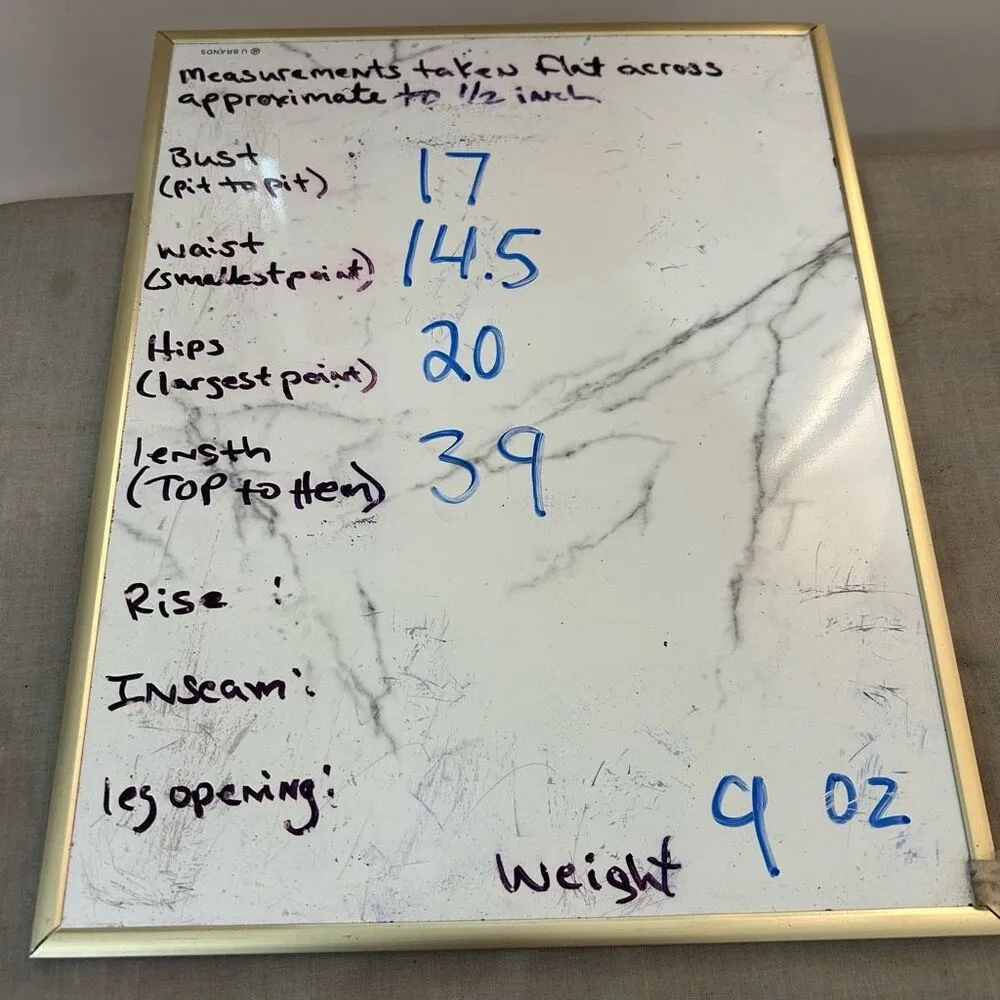 U BRANDS
Measurements taken flat across
approximate to 1/2 inch
Bust : 17
(pit to pit)
Waist 14.5
(smallest point)
Hips 20
(largest point)
length 39
(TOP to Hem)
Rise :
Inseam :
leg opening :
9 OZ
Weight